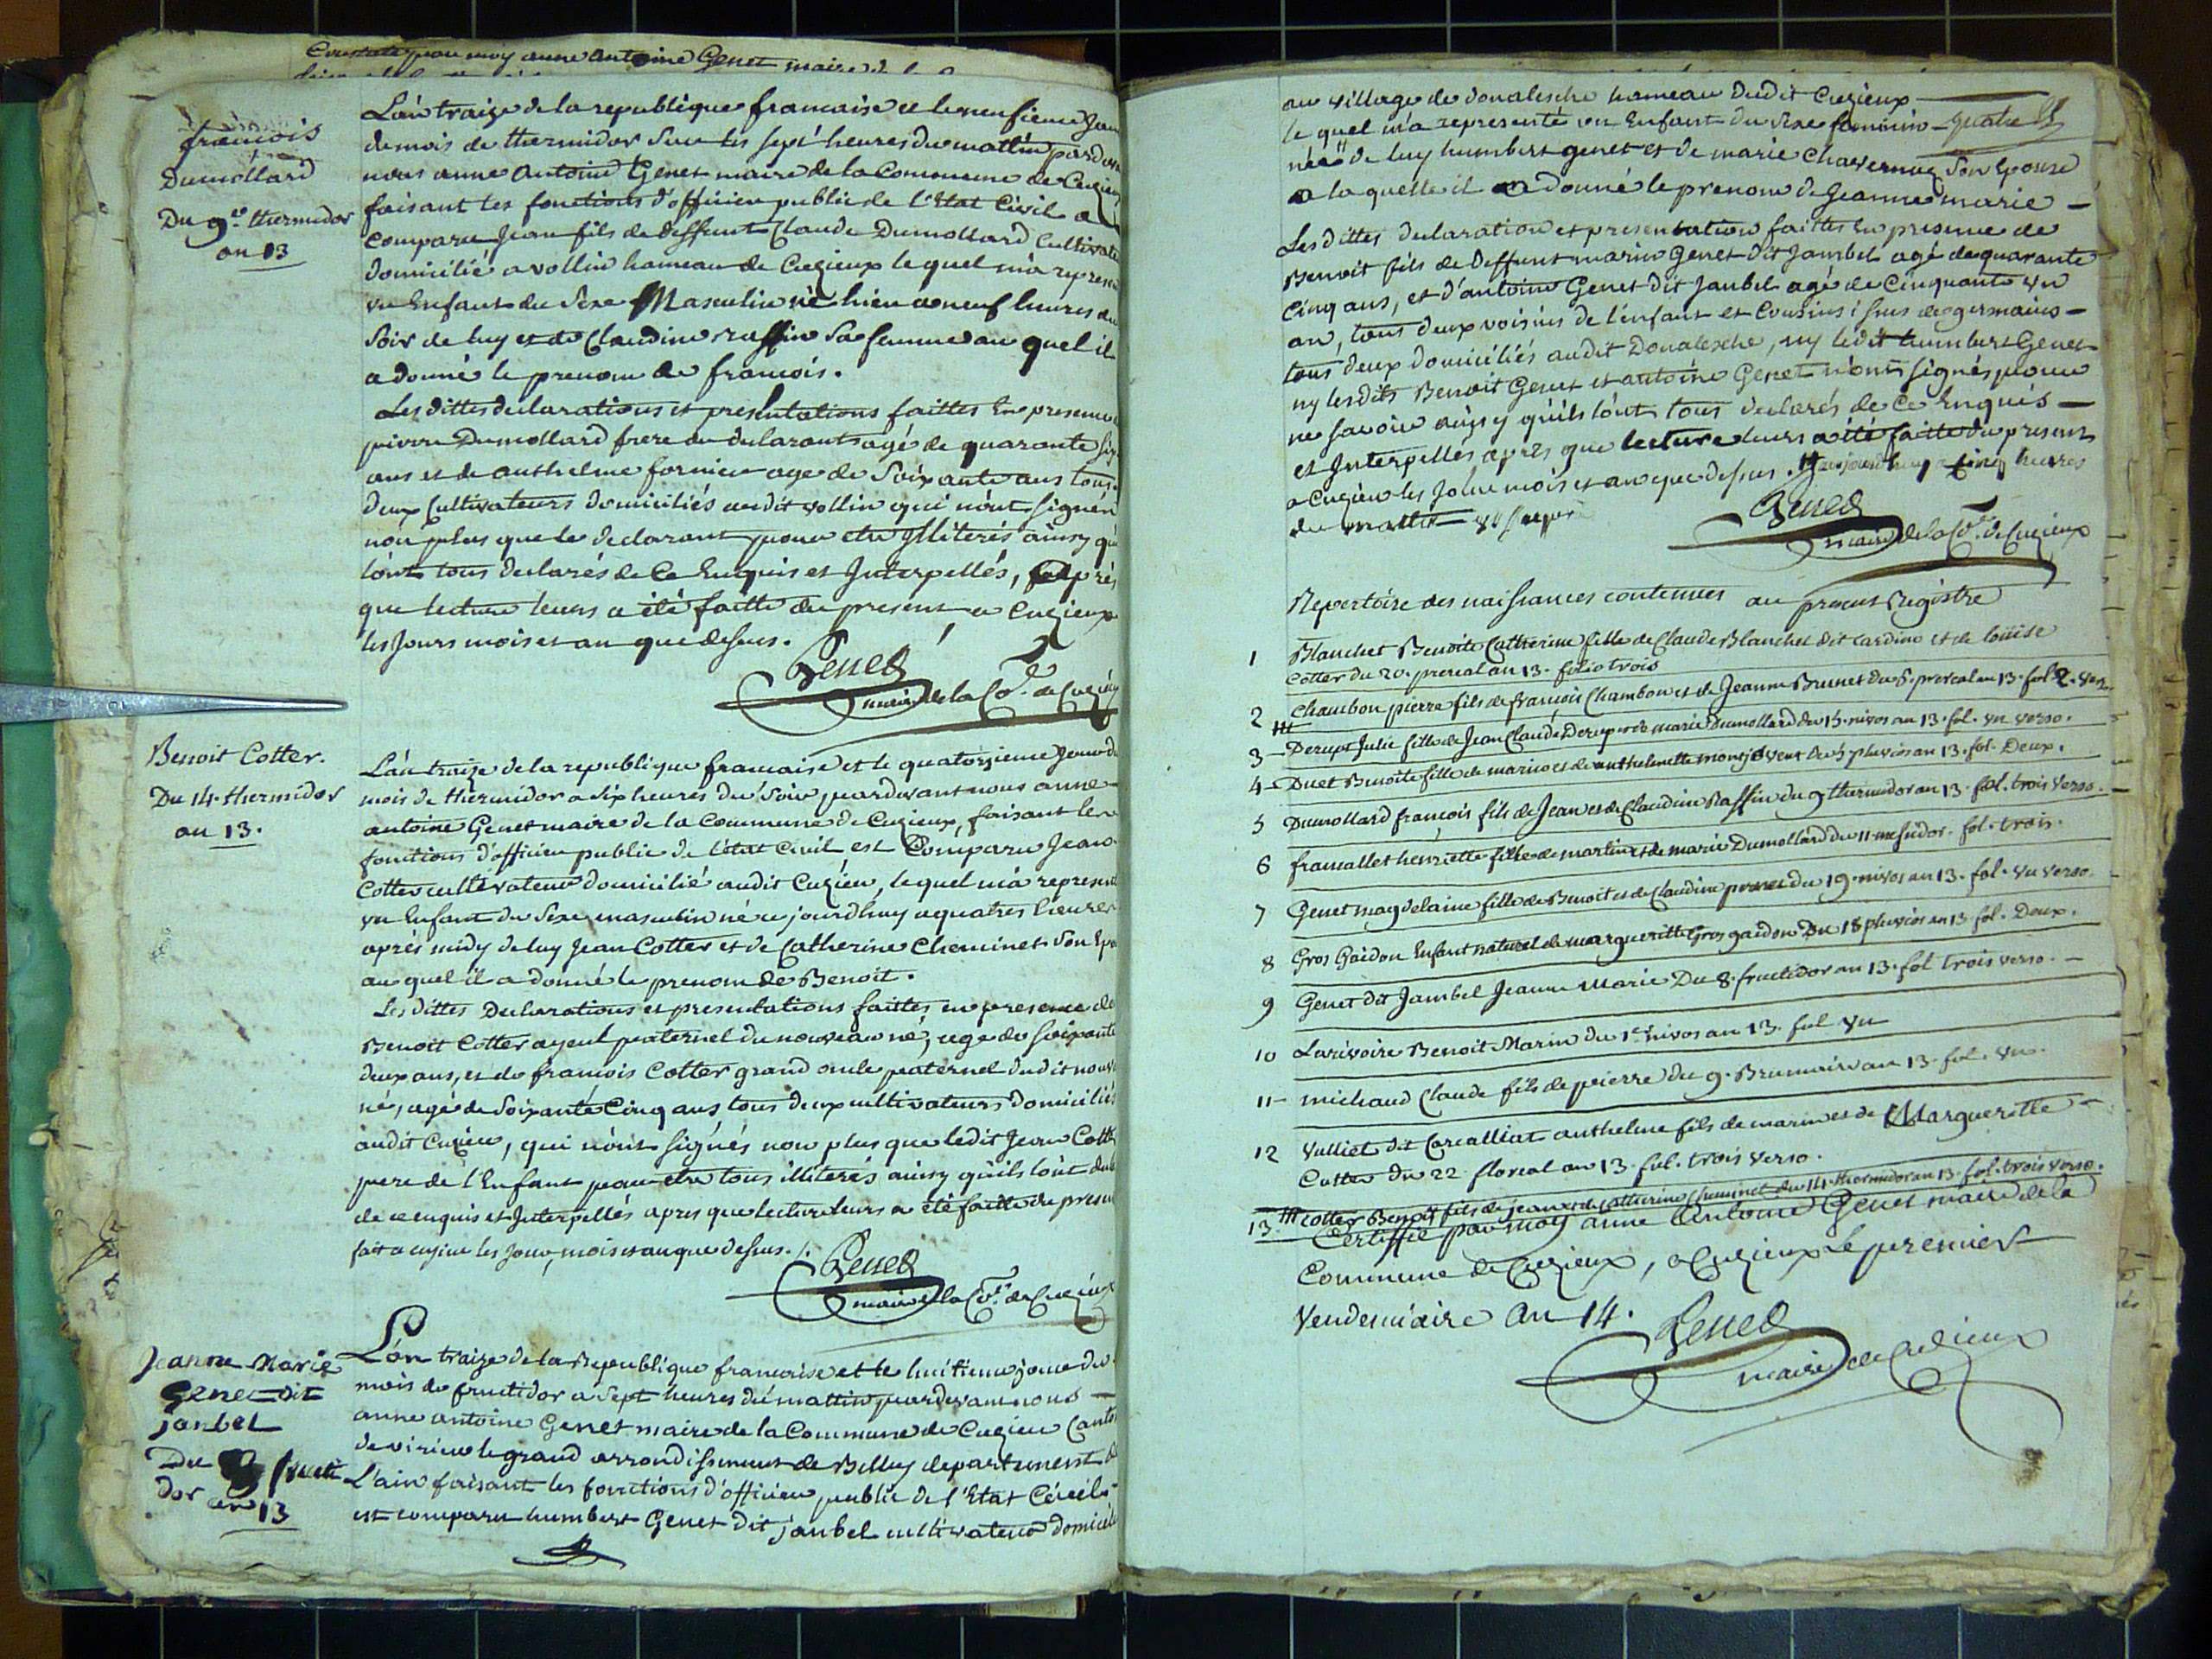 Constaté par moy anne antoine Genet maire de la
francois
Dumollard
Du 9.e thermidor
an 13
L'an traize de la republique francaise et le neufieme Jou
du mois de thermidor sur les sept heures du mattin pardeva
nous anne Antoine Genet maire de la Commune de Cuzieu
faisant les fonctions d'officier public de l'Etat Civil a
Comparu Jean fils de deffunt Claude Dumollard Cultivate
domicilié a vollin hameau de Cuzieux lequel m'a represen
un Enfant du Sexe Masculin né hier a neuf heures du
Soir de luy et de Claudine raffin Sa femme au quel il
a donné le prenom de francois.
Les dittes declarations et presentations faittes En presence
pierre Dumollard frere du declarant agé de quarante six
ans et de anthelme fornier age de Soixante ans tous
deux Cultivateurs domiciliés audit vollin qui n'ont signén
non plus que le declarant pour etre Illiterés ainsy qu
l'ont tous declarés de Ce Enquis et Interpellés, apres
que lecture leurs a été faitte du present, a Cuzieux
les Jours mois et an que dessus.
Genet
maire de la Co.e de Cuzieu
Benoit Cotter.
Du 14. thermidor
an 13.
L'an traize de la republique francaise et le quatorzieme Jour du
mois de thermidor a six heures du Soir pardevant nous anne
antoine Genet maire de la Commune de Cuzieux, faisant les
fonctions d'officier public de l'état Civil est Comparu Jean
Cotter cultivateur domicilié audit Cuzieu, lequel m'a represent
un Enfant du Sexe masculin né ce jourdhuy a quatres heures
après midy de luy Jean Cotter et de Catherine Cheminet Son Epo
au quel il a donné le prenom de Benoit.
Les dittes Declarations et presentations faittes en presence de
Benoit Cotter ayeul paternel du nouveau né, agé de soixante
deux ans, et de francois Cotter grand oncle paternel dudit nouv
né, agé de Soixante Cinq ans tous deux cultivateurs Domiciliés
audit Cuzieu, qui n'ont signés non plus que ledit Jean Cotte
pere de l'Enfant pour etre tous illiterés ainsy qu'ils l'ont decl
de ce enquis et Interpellés apres que lecture leurs a été faitte du presen
fait a cuzieu les Jour, mois et an que dessus./.
Genet
maire de la Co.e de Cuzieux
Jeanne Marie
Genet dit
janbel
Du 8 fructi
dor an 13
L'an traize de la Republique francaise et le huitieme jour du
mois de fructidor a sept heures du mattin pardevant nous —
anne antoine Genet maire de la Commune de Cuzieu Canto
de virieu le grand arrondissement de Belley departement de
L'ain faisant les fonctions d'officier public de l'Etat Civil
est comparu humbert Genet dit janbel cultivateur domicilié
au village de donalesche hameau dudit Cuzieux —
le quel m'a representé un Enfant du Sexe feminin — quatre
née de luy humbert genet et de marie Chavernoz Son Epouse
a la quelle il a donné le prenom de Jeanne marie —
Les dittes declaration et presentation faittes En presence de
Benoit fils de Deffunt marin Genet dit Janbel agé de quarante
Cinq ans, et d'antoine Genet dit Janbel agé de Cinquante un
an, tous deux voisins de l'enfant et Cousins issus de germains —
tous deux domiciliés audit Donalesche, ny ledit humbert Genet
ny lesdits Benoit Genet et antoine Genet n'ont signés pour
ne savoir ainsy qu'ils l'ont tous declarés de Ce Enquis —
et Interpellés après que lecture leurs a été faitte du present
a Cuzieu les Jour mois et an que dessus. aujourdhuy a Cinq heures
du mattin
Genet
maire de la Co.e de Cuzieux
Repertoire des naissances contenues au present Registre
1 Blanchet Benoite Catherine fille de Claude Blanchet dit cardino et de loüise
Cotter du 20. prereal an 13. folio trois
2 Chambon pierre fils de francois Chambon et de Jeanne Brunet du 8. prereal an 13. fol. 2. verso.
3 — Derupt Julie fille de Jean Claude Derupt et de marie Dumollard du 15. nivos an 13. fol. un verso.
4 — Duet Benoite fille de marin et de anthelmette monjovent du 5 pluvios an 13. fol. Deux.
5 Dumollard francois fils de Jean et de Claudine Raffin du 9 thermidor an 13. fol. trois verso.
6 framallet henriette fille de martin et de marie Dumollard du 11. messidor. fol. trois.
7 Genet magdelaine fille de Benoit et de Claudine pernet du 19. nivos an 13. fol. un verso.
8 Gros Gaidon Enfant naturel de margueritte Gros gaidon Du 18 pluvios an 13. fol. Deux.
9 Genet dit Jambel Jeanne Marie Du 8. fructidor an 13. fol trois verso. —
10 Larivoire Benoit Marin du 1.er nivos an 13. fol un
11 — michaud Claude fils de pierre du 9. Brumaire an 13. fol. un.
12 Vulliet dit Corcalliat anthelme fils de marin et de Margueritte
Cotter du 22 floreal an 13. fol. trois verso.
13. Cotter Benoit fils de jean et de Catherine Cheminet du 14. thermidor an 13. fol. trois verso.
Certiffié par moy anne Antoine Genet maire de la
Commune de Cuzieux, a Cuzieux le premier
Vendemiaire An 14.
Genet
maire de Cuzieux